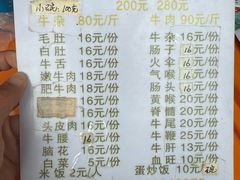 小锅：100元 200元 280元
牛杂 80元/斤 牛肉 90元/斤
毛肚 16元/份 牛杂 16元/份
白肚 16元/份 肠子 16元/份
牛舌 16元/份 火伞 16元/份
嫩牛肉 18元/份 气喉 16元/份
肥牛肉 18元/份 肠头 16元/份
16元/份 黄喉 20元/份
16元/份 脊髓 20元/份
头皮肉 16元/份 牛鞭 20元/份
牛腰 16元/份 牛鞭 25元/份
脑花 16元/份 牛肝 13元/份
白菜 5元/份 血旺 10元/份
米饭 2元/人 蛋炒饭 10元/份